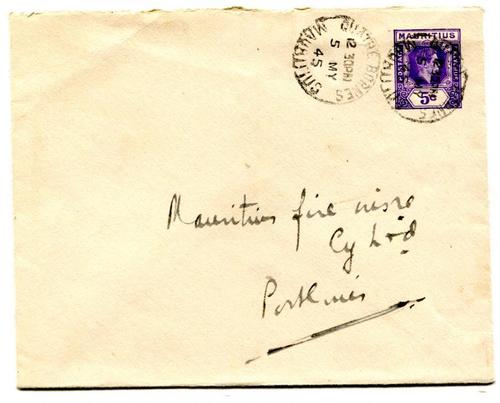 QUATRE BORNES
12 30PM
5 MY
45
MAURITIUS
MAURITIUS
POSTAGE
5c
Mauritius fire insre
Cy Ltd
Port Louis